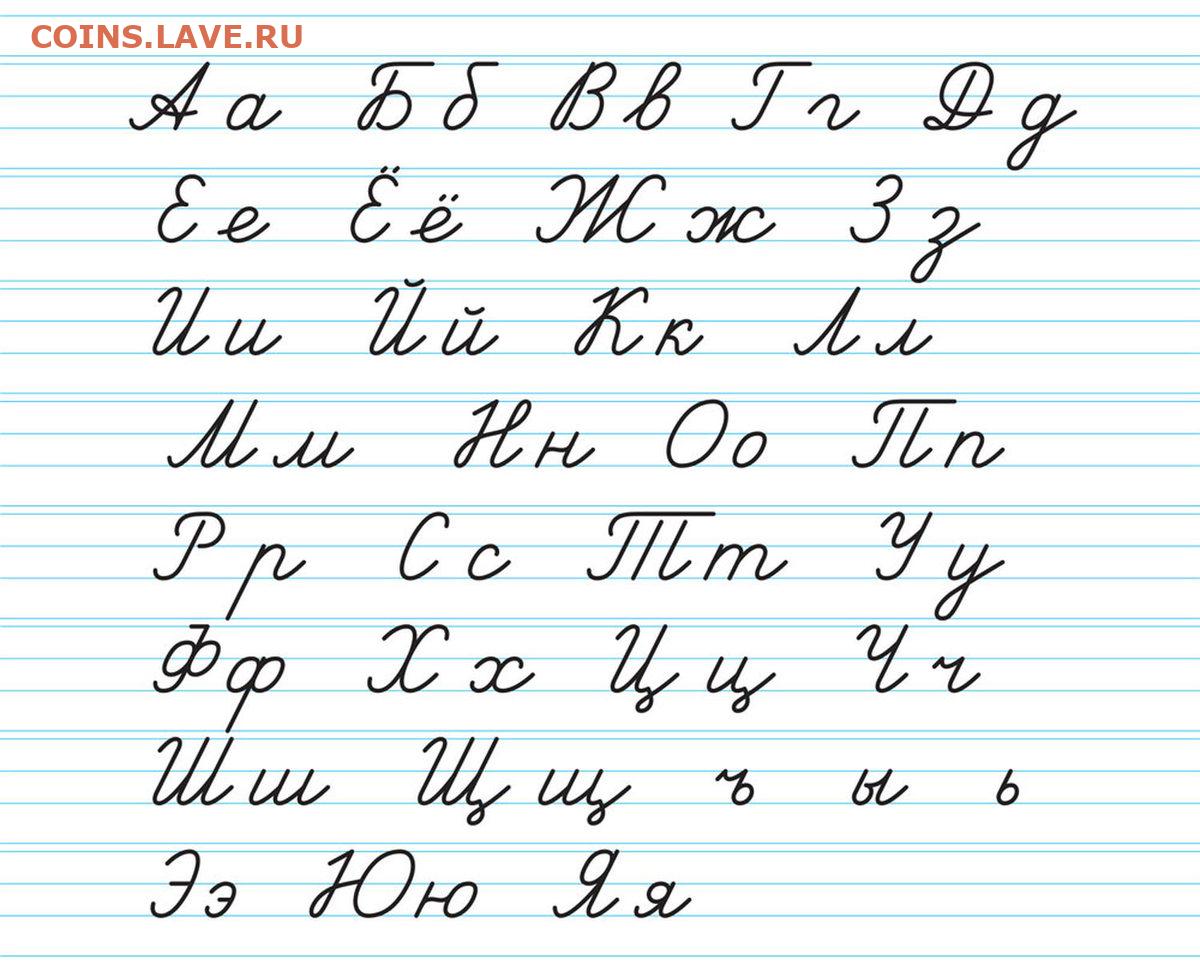 COINS.LAVE.RU
Аа Бб Вв Гг Дд
Ее Ёё Жж Зз
Ии Йй Кк Лл
Мм Нн Оо Пп
Рр Сс Тт Уу
Фф Хх Цц Чч
Шш Щщ ъ ы ь
Ээ Юю Яя